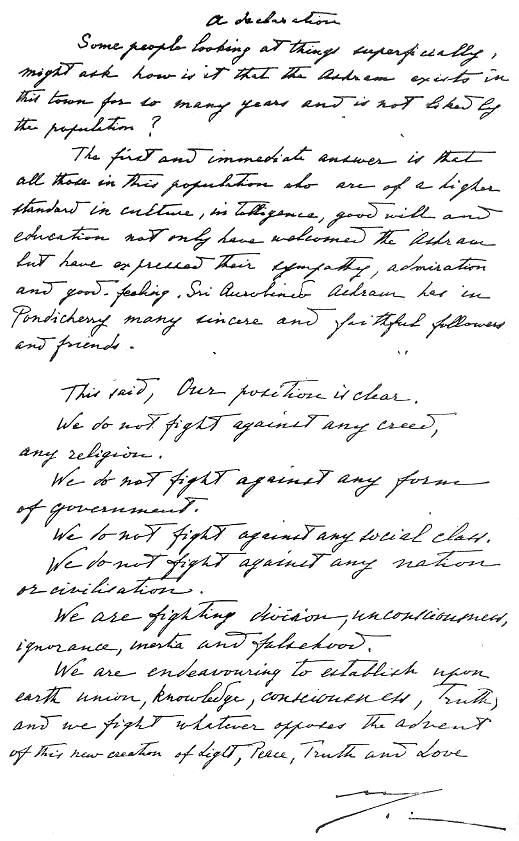 A declaration
Some people looking at things superficially,
might ask how is it that the Ashram exists in
this town for so many years and is not liked by
the population?
The first and immediate answer is that
all those in this population who are of a higher
standard in culture, intelligence, good will and
education not only have welcomed the Ashram
but have expressed their sympathy, admiration
and good-feeling. Sri Aurobindo Ashram has in
Pondicherry many sincere and faithful followers
and friends.
This said, Our position is clear.
We do not fight against any creed,
any religion.
We do not fight against any form
of government.
We do not fight against any social class.
We do not fight against any nation
or civilisation.
We are fighting division, unconsciousness,
ignorance, inertia and falsehood.
We are endeavouring to establish upon
earth union, knowledge, consciousness, Truth,
and we fight whatever opposes the advent
of this new creation of Light, Peace, Truth and Love